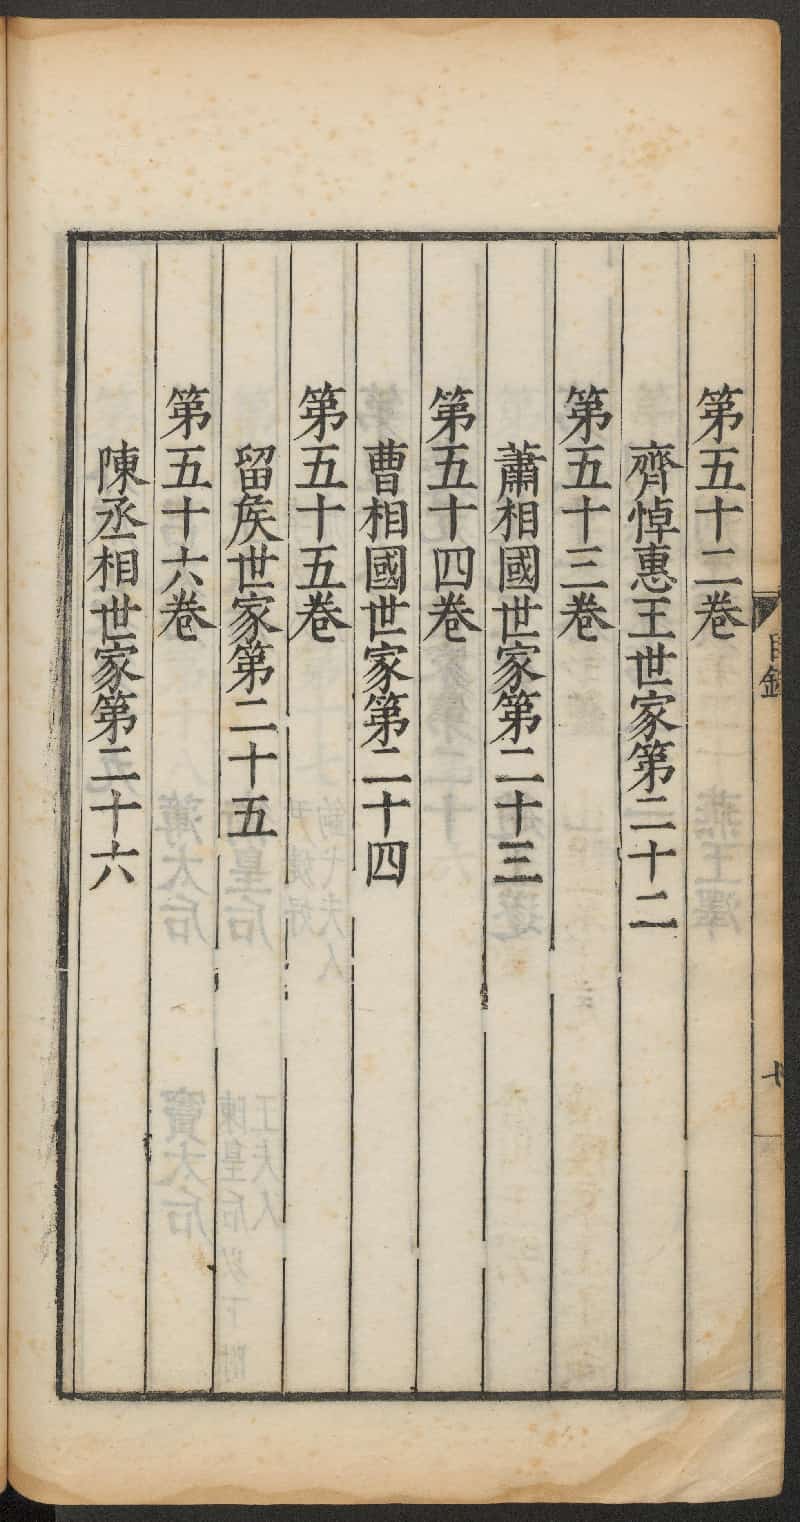 第五十二卷
齊悼惠王世家第二十二
第五十三卷
蕭相國世家第二十三
第五十四卷
曹相國世家第二十四
第五十五卷
留矦世家第二十五
第五十六卷
陳丞相世家第二十六
目錄